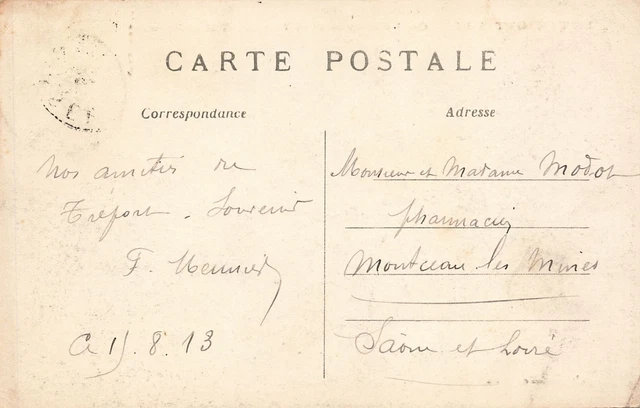 CARTE POSTALE
Correspondance
Adresse
Nos amitiés de
Tréfort. Souvenir
F. Meunier
Ce 15.8.13
Monsieur et Madame Modot
pharmacien
Montceau les Mines
Saône et Loire